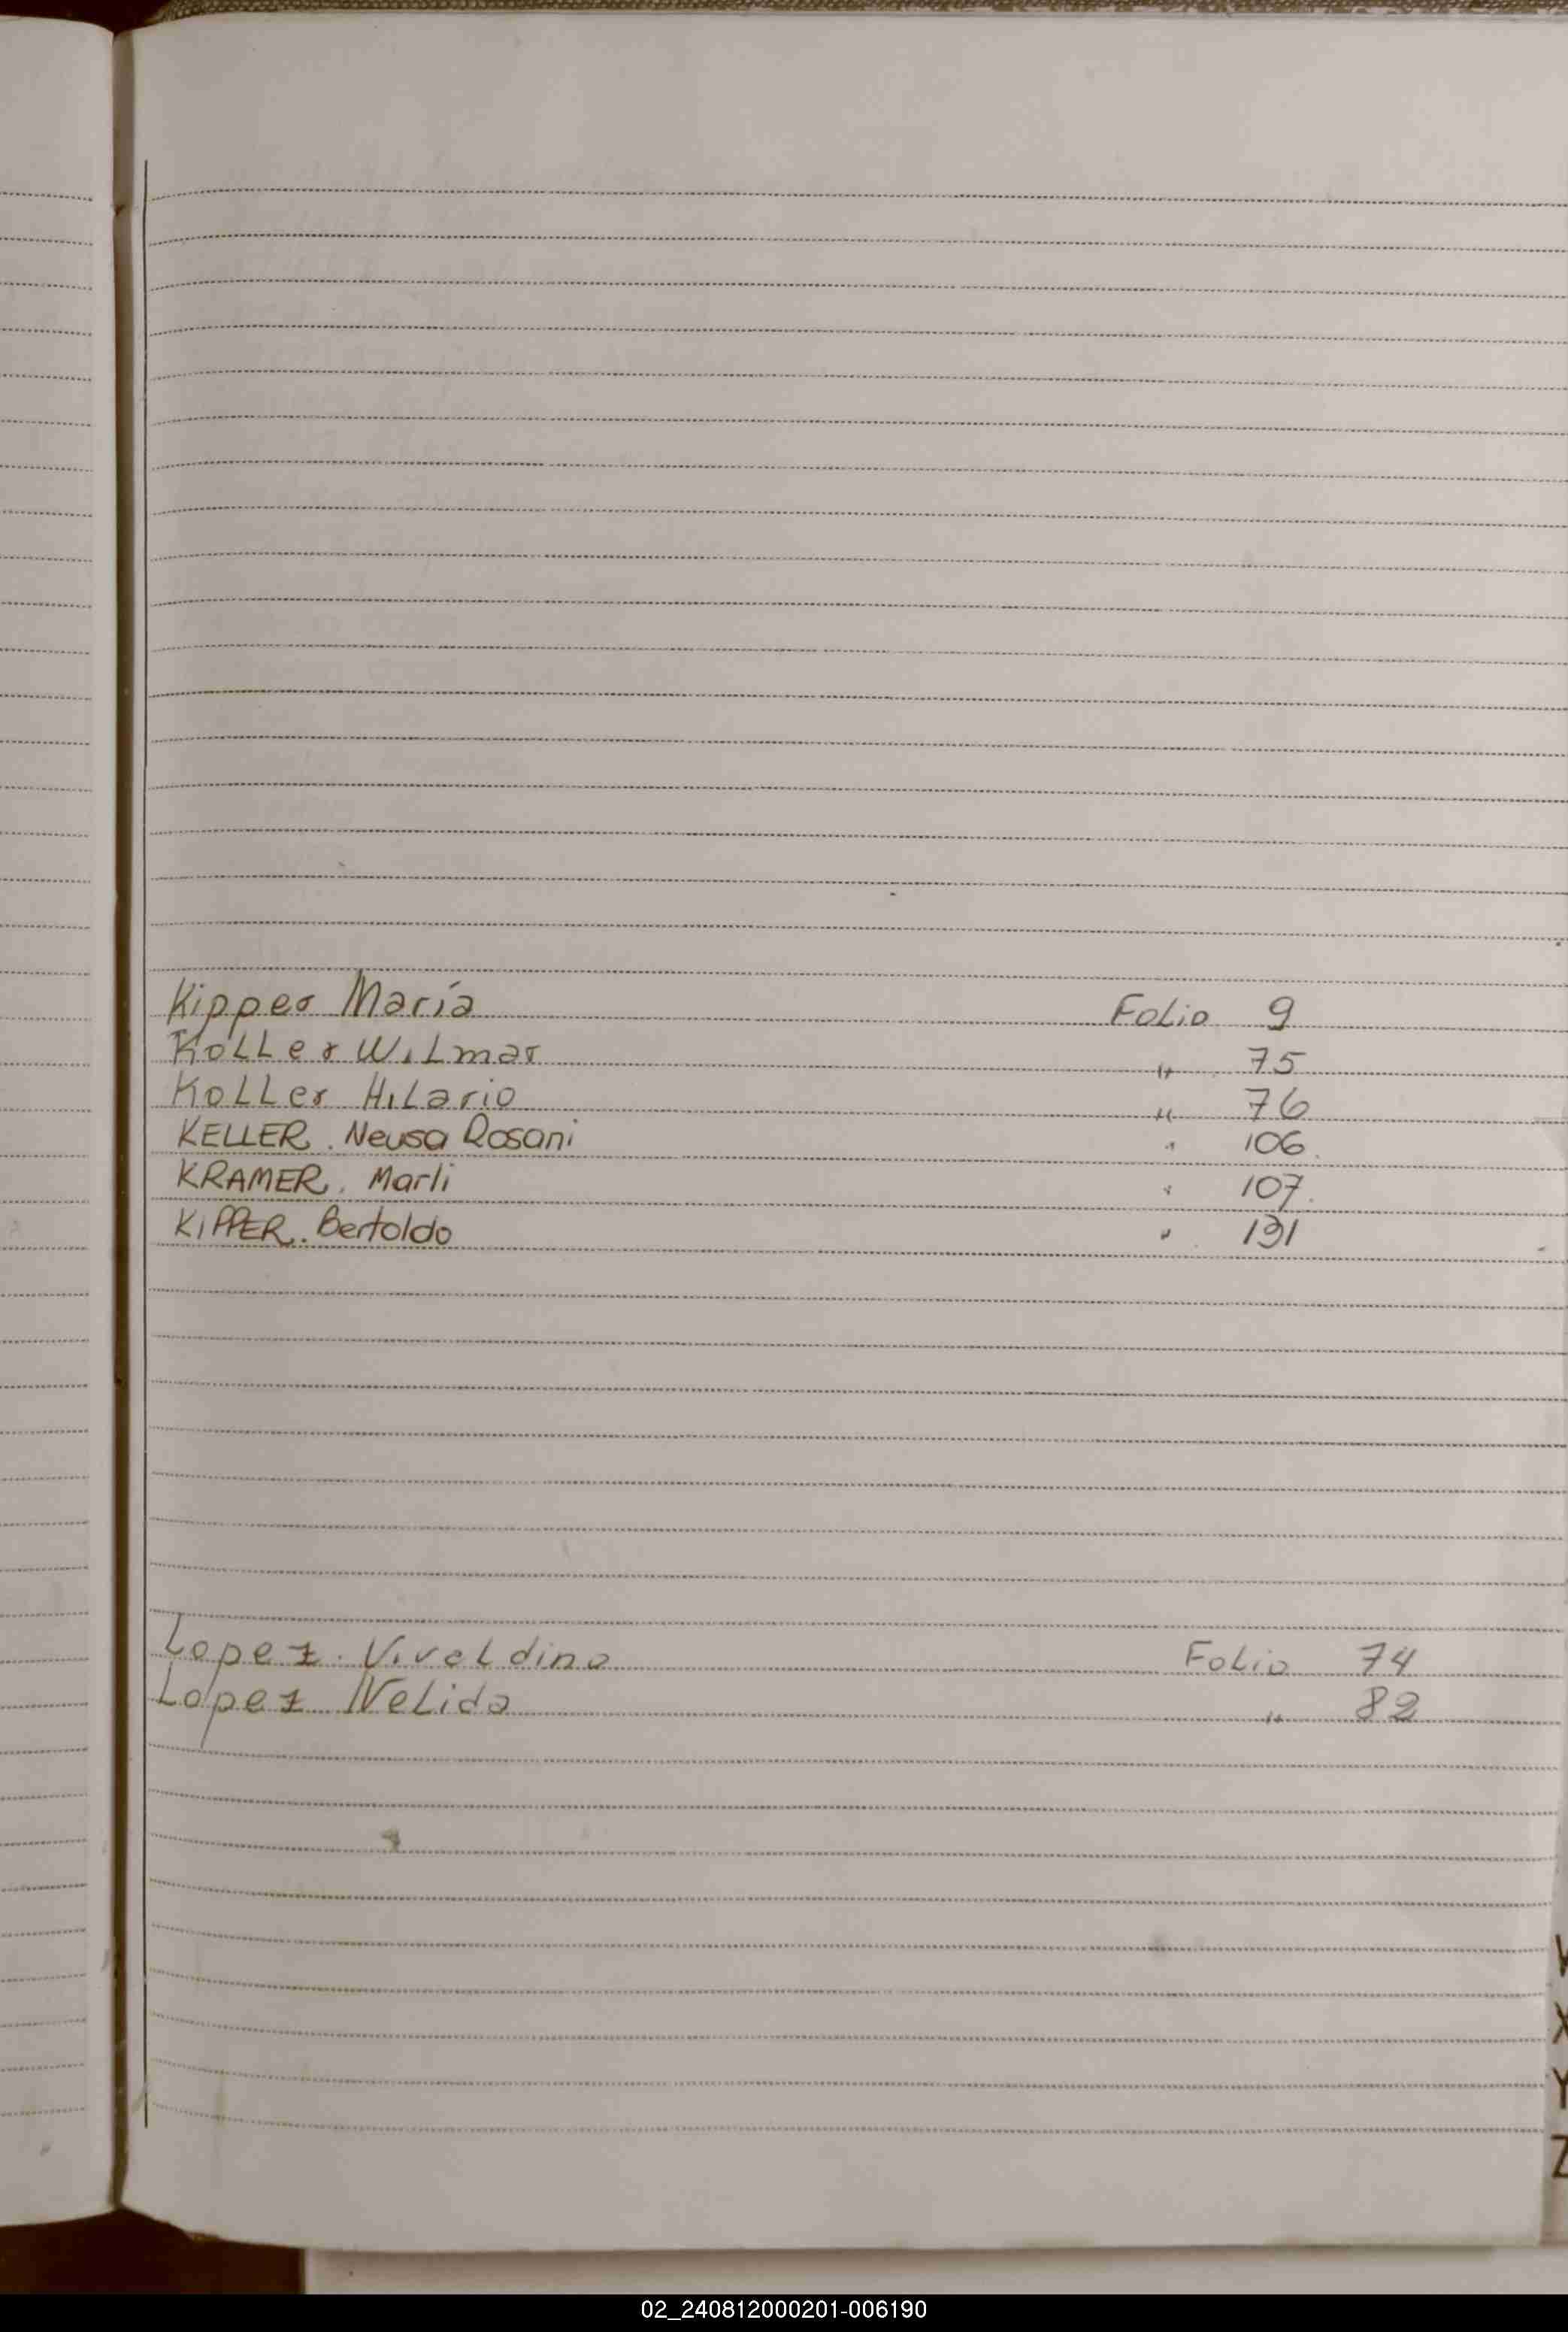 Kipper María Folio 9
Koller Wilmar " 75
Koller Hilario " 76
KELLER. Neusa Rosani " 106.
KRAMER. Marli " 107.
KIPPER. Bertoldo " 131
Lopez. Viveldino Folio 74
Lopez Nelida " 82
X
Y
Z
02_240812000201-006190